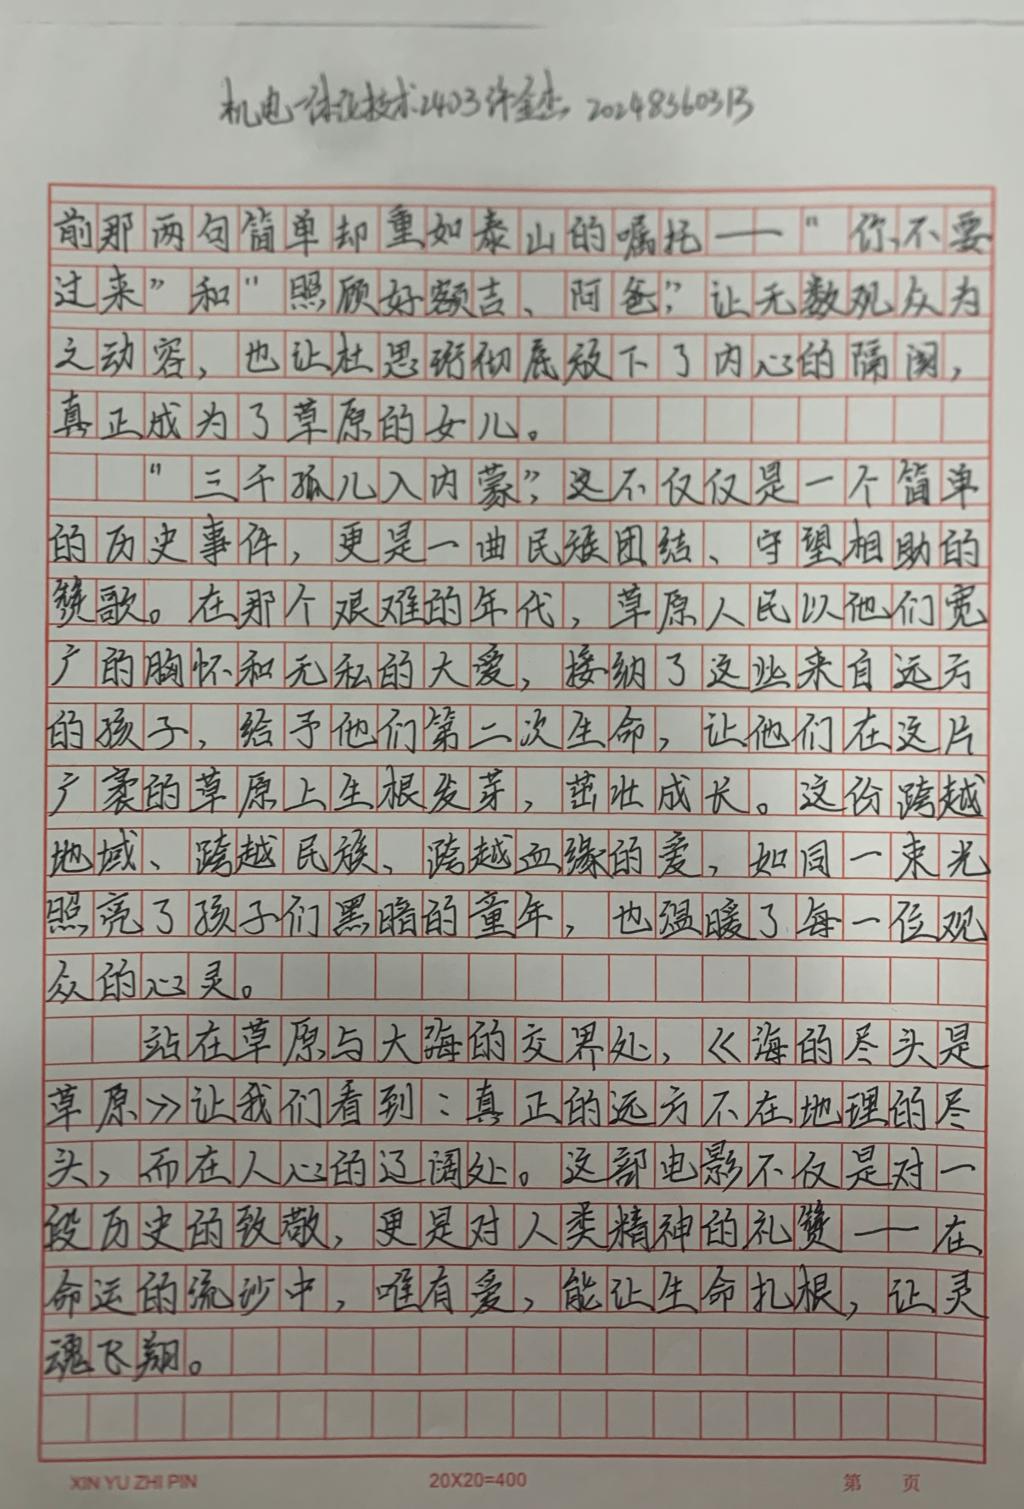 机电一体化技术2403 许金杰 20248360313
前那两句简单却重如泰山的嘱托——“你不要
过来”和“照顾好额吉、阿爸”,让无数观众为
之动容，也让杜思珩彻底放下了内心的隔阂，
真正成为了草原的女儿。
“三千孤儿入内蒙”,这不仅仅是一个简单
的历史事件，更是一曲民族团结、守望相助的
赞歌。在那个艰难的年代，草原人民以他们宽
广的胸怀和无私的大爱，接纳了这些来自远方
的孩子，给予他们第二次生命，让他们在这片
广袤的草原上生根发芽，茁壮成长。这份跨越
地域、跨越民族、跨越血缘的爱，如同一束光
照亮了孩子们黑暗的童年，也温暖了每一位观
众的心灵。
站在草原与大海的交界处，《海的尽头是
草原》让我们看到：真正的远方不在地理的尽
头，而在人心的辽阔处。这部电影不仅是对一
段历史的致敬，更是对人类精神的礼赞——在
命运的流沙中，唯有爱，能让生命扎根，让灵
魂飞翔。
XIN YU ZHI PIN
20X20=400
第 页